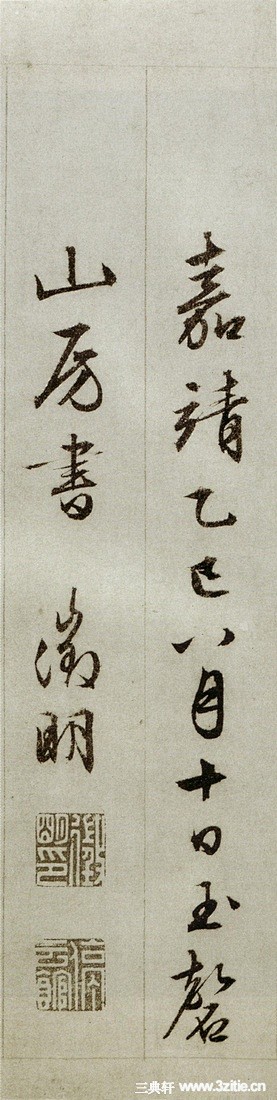 嘉靖乙巳八月十日玉磬
山房書 徵明
徵明印
停雲館
三典轩 www.3zitie.cn